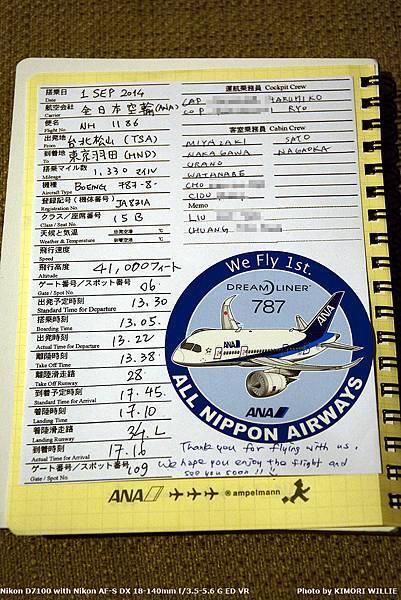 搭乗日 1 SEP 2014
Date
航空会社 全日本空輸(ANA)
Carrier
便名 NH 1186
Flight No.
出発地 台北松山 (TSA)
From
到着地 東京羽田 (HND)
To
搭乗マイル数 1,330 マイル
Mileage
機種 BOEING 787-8
Aircraft Type
登録記号(機体番号) JA831A
Registration No.
クラス/座席番号 15B
Class / Seat No.
天候と気温 出発空港 ℃
Weather & Temperature 到着空港 ℃
飛行速度
Speed
飛行高度 41,000フィート
Altitude
ゲート番号/スポット番号 06
Gate / Spot No.
出発予定時刻 13.30
Standard Time for Departure
搭乗時刻 13.05.
Boarding Time
出発時刻 13.22
Actual Time for Departure
離陸時刻 13.38
Take Off Time
離陸滑走路 28
Take Off Runway
到着予定時刻 17.45.
Standard Time for Arrival
着陸時刻 17.10
Landing Time
着陸滑走路 34.L
Landing Runway
到着時刻 17.16
Actual Time for Arrival
ゲート番号/スポット番号 109
Gate / Spot No.
運航乗務員 Cockpit Crew
CAP TAKUMI KO
COP RYO
客室乗務員 Cabin Crew
MIYAZAKI SATO
NAKAGAWA NAGAOKA
URANO
WATANABE
CHO
CIOU
Memo
LIU
CHUANG
We Fly 1st.
DREAMLINER
787
ANA
ANA
ANA
ALL NIPPON AIRWAYS
Thank you for flying with us.
We hope you enjoy the flight and
see you soon!!
ANA ® ampelmann
Nikon D7100 with Nikon AF-S DX 18-140mm f/3.5-5.6 G ED VR Photo by KIMORI WILLIE